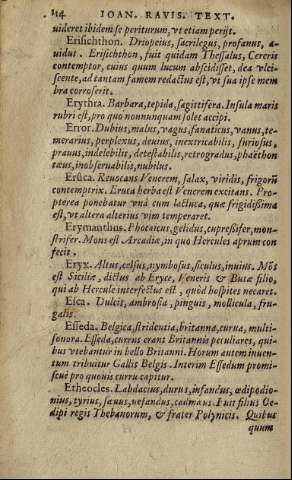 114 IOAN. RAVIS. TEXT.
uideret ibidem se periturum, vt etiam perijt.
Erisichthon. Driopeius, sacrilegus, profanus, a-
uidus. Erisichthon, fuit quidam Thessalus, Cereris
contemptor, cuius quum lucum abscidisset, dea vlci-
scente, ad tantam famem redactus est, vt sua ipse mem
bra corroserit.
Erythra. Barbara, tepida, sagittifera. Insula maris
rubri est, pro quo nonnunquam solet accipi.
Error. Dubius, malus, vagus, fanaticus, vanus, te-
merarius, perplexus, deuius, inextricabilis, furiosus.
prauus, indelebilis, detestabilis, retrogradus, phaëthon
tæus, inobseruabilis, nubilus.
Eruca. Reuocans Venerem, salax, viridis, frigorū
contemptrix. Eruca herba est Venerem excitans. Pro-
pterea ponebatur vnà cum lactuca, quæ frigidissima
est, vt altera alterius vim temperaret.
Erymanthus. Phocaicus, gelidus, cupressifer, mon-
strifer. Mons est Arcadiæ, in quo Hercules aprum con
fecit.
Eryx. Altus, celsus, nymbosus, siculus, inuius. Mōs
est Siciliæ, dictus ab Eryce, Veneris & Butæ filio,
qui ab Hercule interfectus est, quòd hospites necaret.
Esca. Dulcis, ambrosia, pinguis, mollicula, fru-
galis.
Esseda. Belgica, stridentia, britanna, curua, multi-
sonora. Esseda, currus erant Britannis peculiares, qui-
bus vtebantur in bello Britanni. Horum autem inuen-
tum tribuitur Gallis Belgis. Interim Essedum promi-
scuè pro quouis curru capitur.
Etheocles. Labdacius, durus, infandus, œdipodio-
nius, tyrius, sæuus, nefandus, cadmæus. Fuit filius Oe-
dipi regis Thebanorum, & frater Polynicis. Quibus
quum